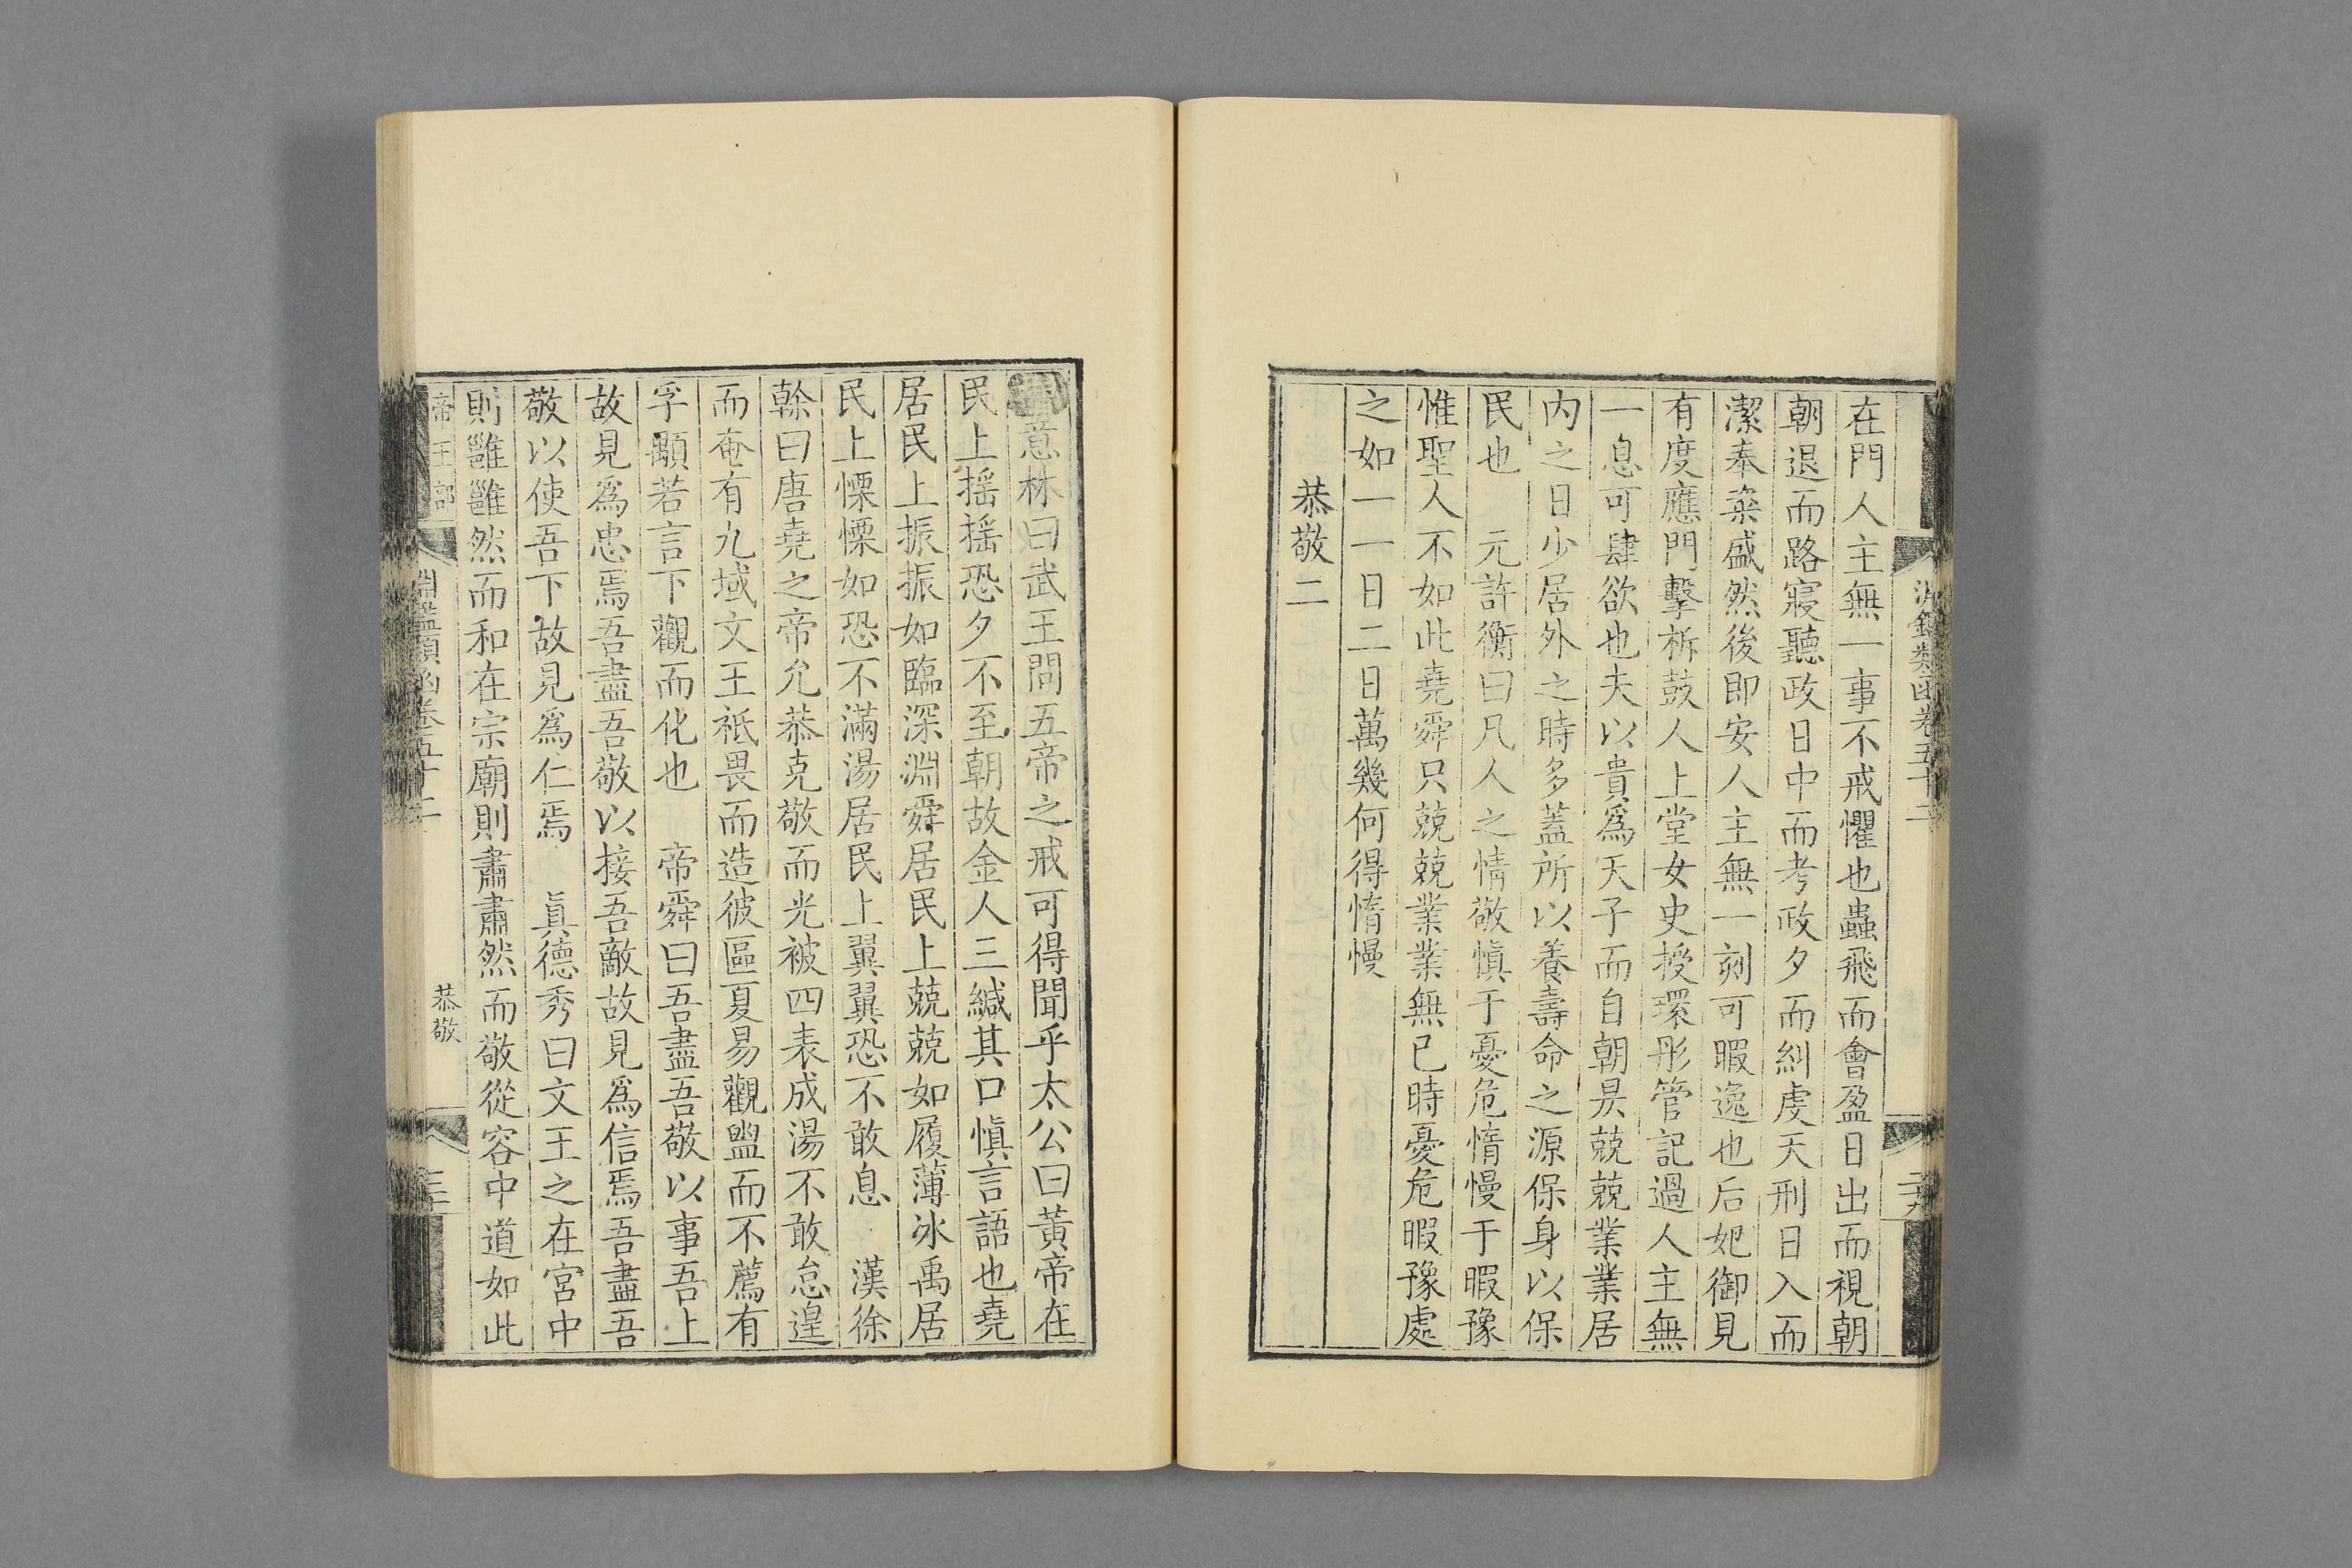 淵鑑類函卷五十二
在門人主無一事不戒懼也蟲飛而會盈日出而視朝
朝退而路寢聽政日中而考政夕而糾虔天刑日入而
潔奉粢盛然後即安人主無一刻可暇逸也后妃御見
有度應門擊柝鼓人上堂女史授環彤管記過人主無
一息可肆欲也夫以貴爲天子而自朝昃兢兢業業居
内之日少居外之時多蓋所以養壽命之源保身以保
民也　元許衡曰凡人之情敬愼于憂危惰慢于暇豫
惟聖人不如此堯舜只兢兢業業無已時憂危暇豫處
之如一一日二日萬幾何得惰慢
恭敬二
意林曰武王問五帝之戒可得聞乎太公曰黃帝在
民上搖搖恐夕不至朝故金人三緘其口愼言語也堯
居民上振振如臨深淵舜居民上兢兢如履薄冰禹居
民上慄慄如恐不滿湯居民上翼翼恐不敢息　漢徐
幹曰唐堯之帝允恭克敬而光被四表成湯不敢怠遑
而奄有九域文王祗畏而造彼區夏易觀盥而不薦有
孚顒若言下觀而化也　帝舜曰吾盡吾敬以事吾上
故見爲忠焉吾盡吾敬以接吾敵故見爲信焉吾盡吾
敬以使吾下故見爲仁焉　眞德秀曰文王之在宮中
則雝雝然而和在宗廟則肅肅然而敬從容中道如此
帝王部
淵鑑類函卷五十二
恭敬